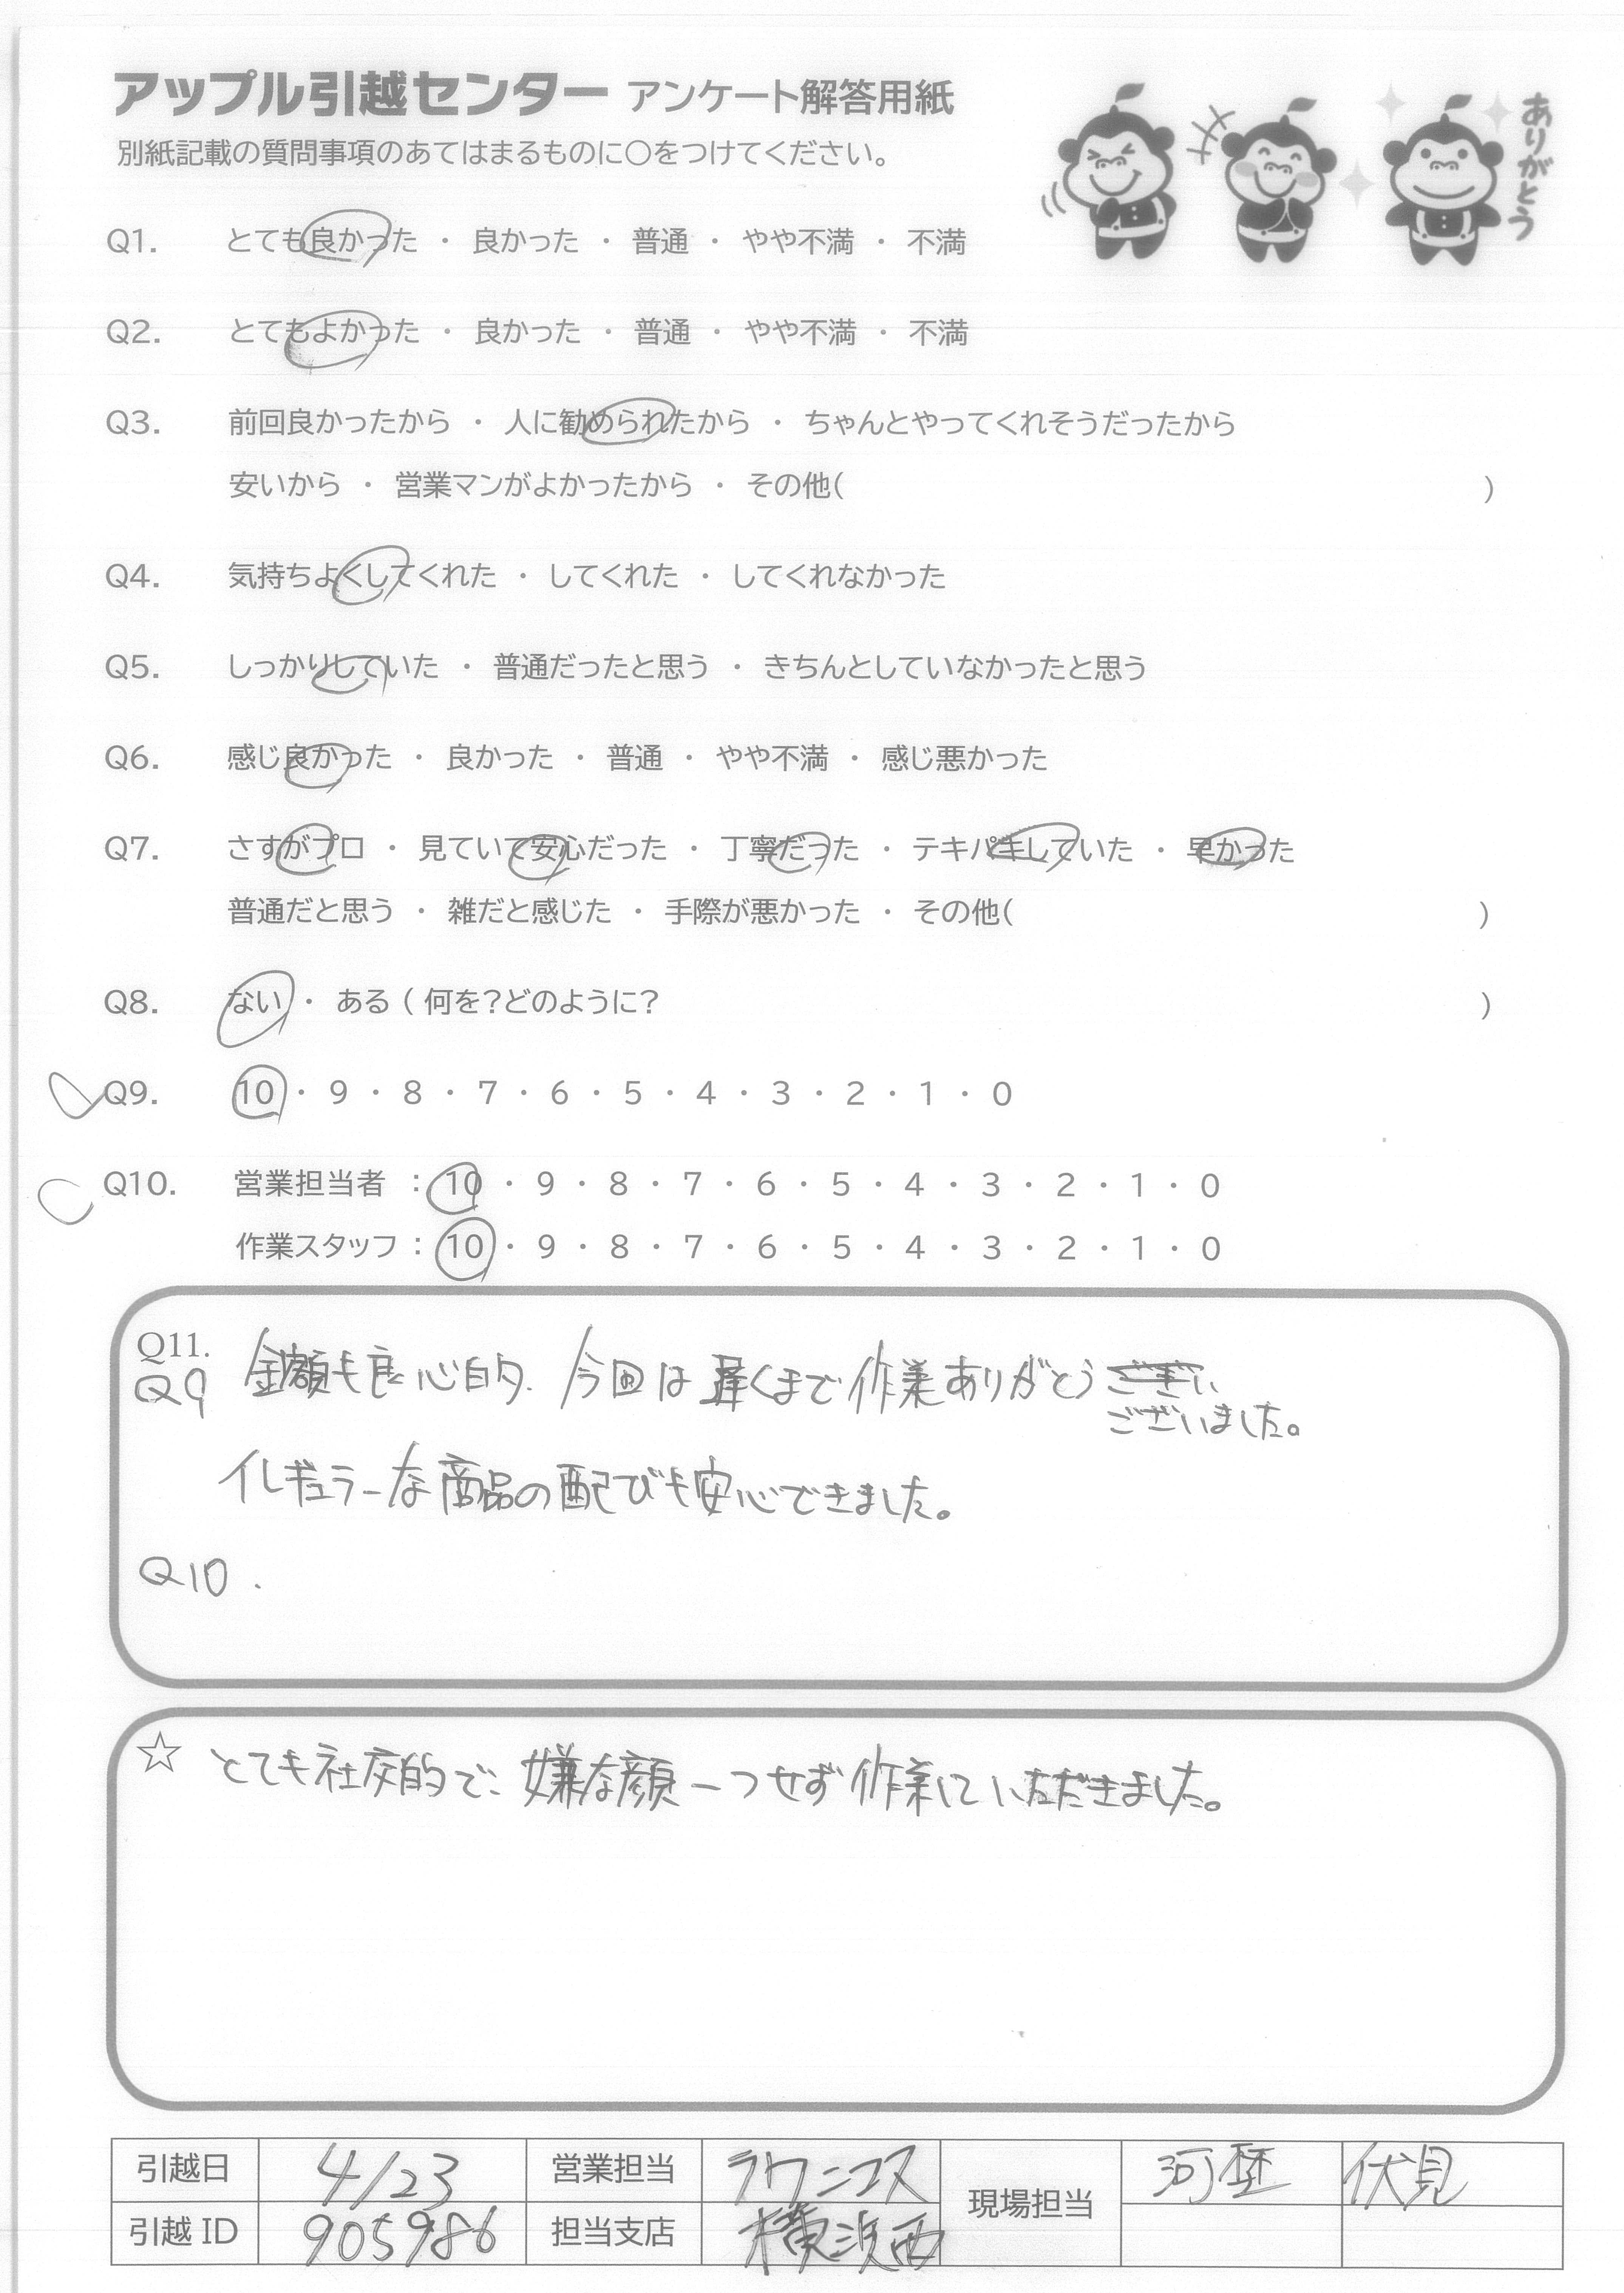 アップル引越センター アンケート解答用紙
別紙記載の質問事項のあてはまるものに〇をつけてください。
ありがとう
Q1. とても良かった ・ 良かった ・ 普通 ・ やや不満 ・ 不満
Q2. とてもよかった ・ 良かった ・ 普通 ・ やや不満 ・ 不満
Q3. 前回良かったから ・ 人に勧められたから ・ ちゃんとやってくれそうだったから
安いから ・ 営業マンがよかったから ・ その他( )
Q4. 気持ちよくしてくれた ・ してくれた ・ してくれなかった
Q5. しっかりしていた ・ 普通だったと思う ・ きちんとしていなかったと思う
Q6. 感じ良かった ・ 良かった ・ 普通 ・ やや不満 ・ 感じ悪かった
Q7. さすがプロ ・ 見ていて安心だった ・ 丁寧だった ・ テキパキしていた ・ 早かった
普通だと思う ・ 雑だと感じた ・ 手際が悪かった ・ その他( )
Q8. ない ・ ある ( 何を?どのように? )
Q9. 10 ・ 9 ・ 8 ・ 7 ・ 6 ・ 5 ・ 4 ・ 3 ・ 2 ・ 1 ・ 0
Q10. 営業担当者 : 10 ・ 9 ・ 8 ・ 7 ・ 6 ・ 5 ・ 4 ・ 3 ・ 2 ・ 1 ・ 0
作業スタッフ : 10 ・ 9 ・ 8 ・ 7 ・ 6 ・ 5 ・ 4 ・ 3 ・ 2 ・ 1 ・ 0
Q11.
Q9 金額も良心的. 今回は遅くまで作業ありがとう
ございました。
イレギュラーな商品の配びも安心できました。
Q10.
☆ とても社交的で、嫌な顔一つせず作業していただきました。
引越日 4/23 営業担当 現場担当 伏見
引越ID 905986 担当支店 横浜西